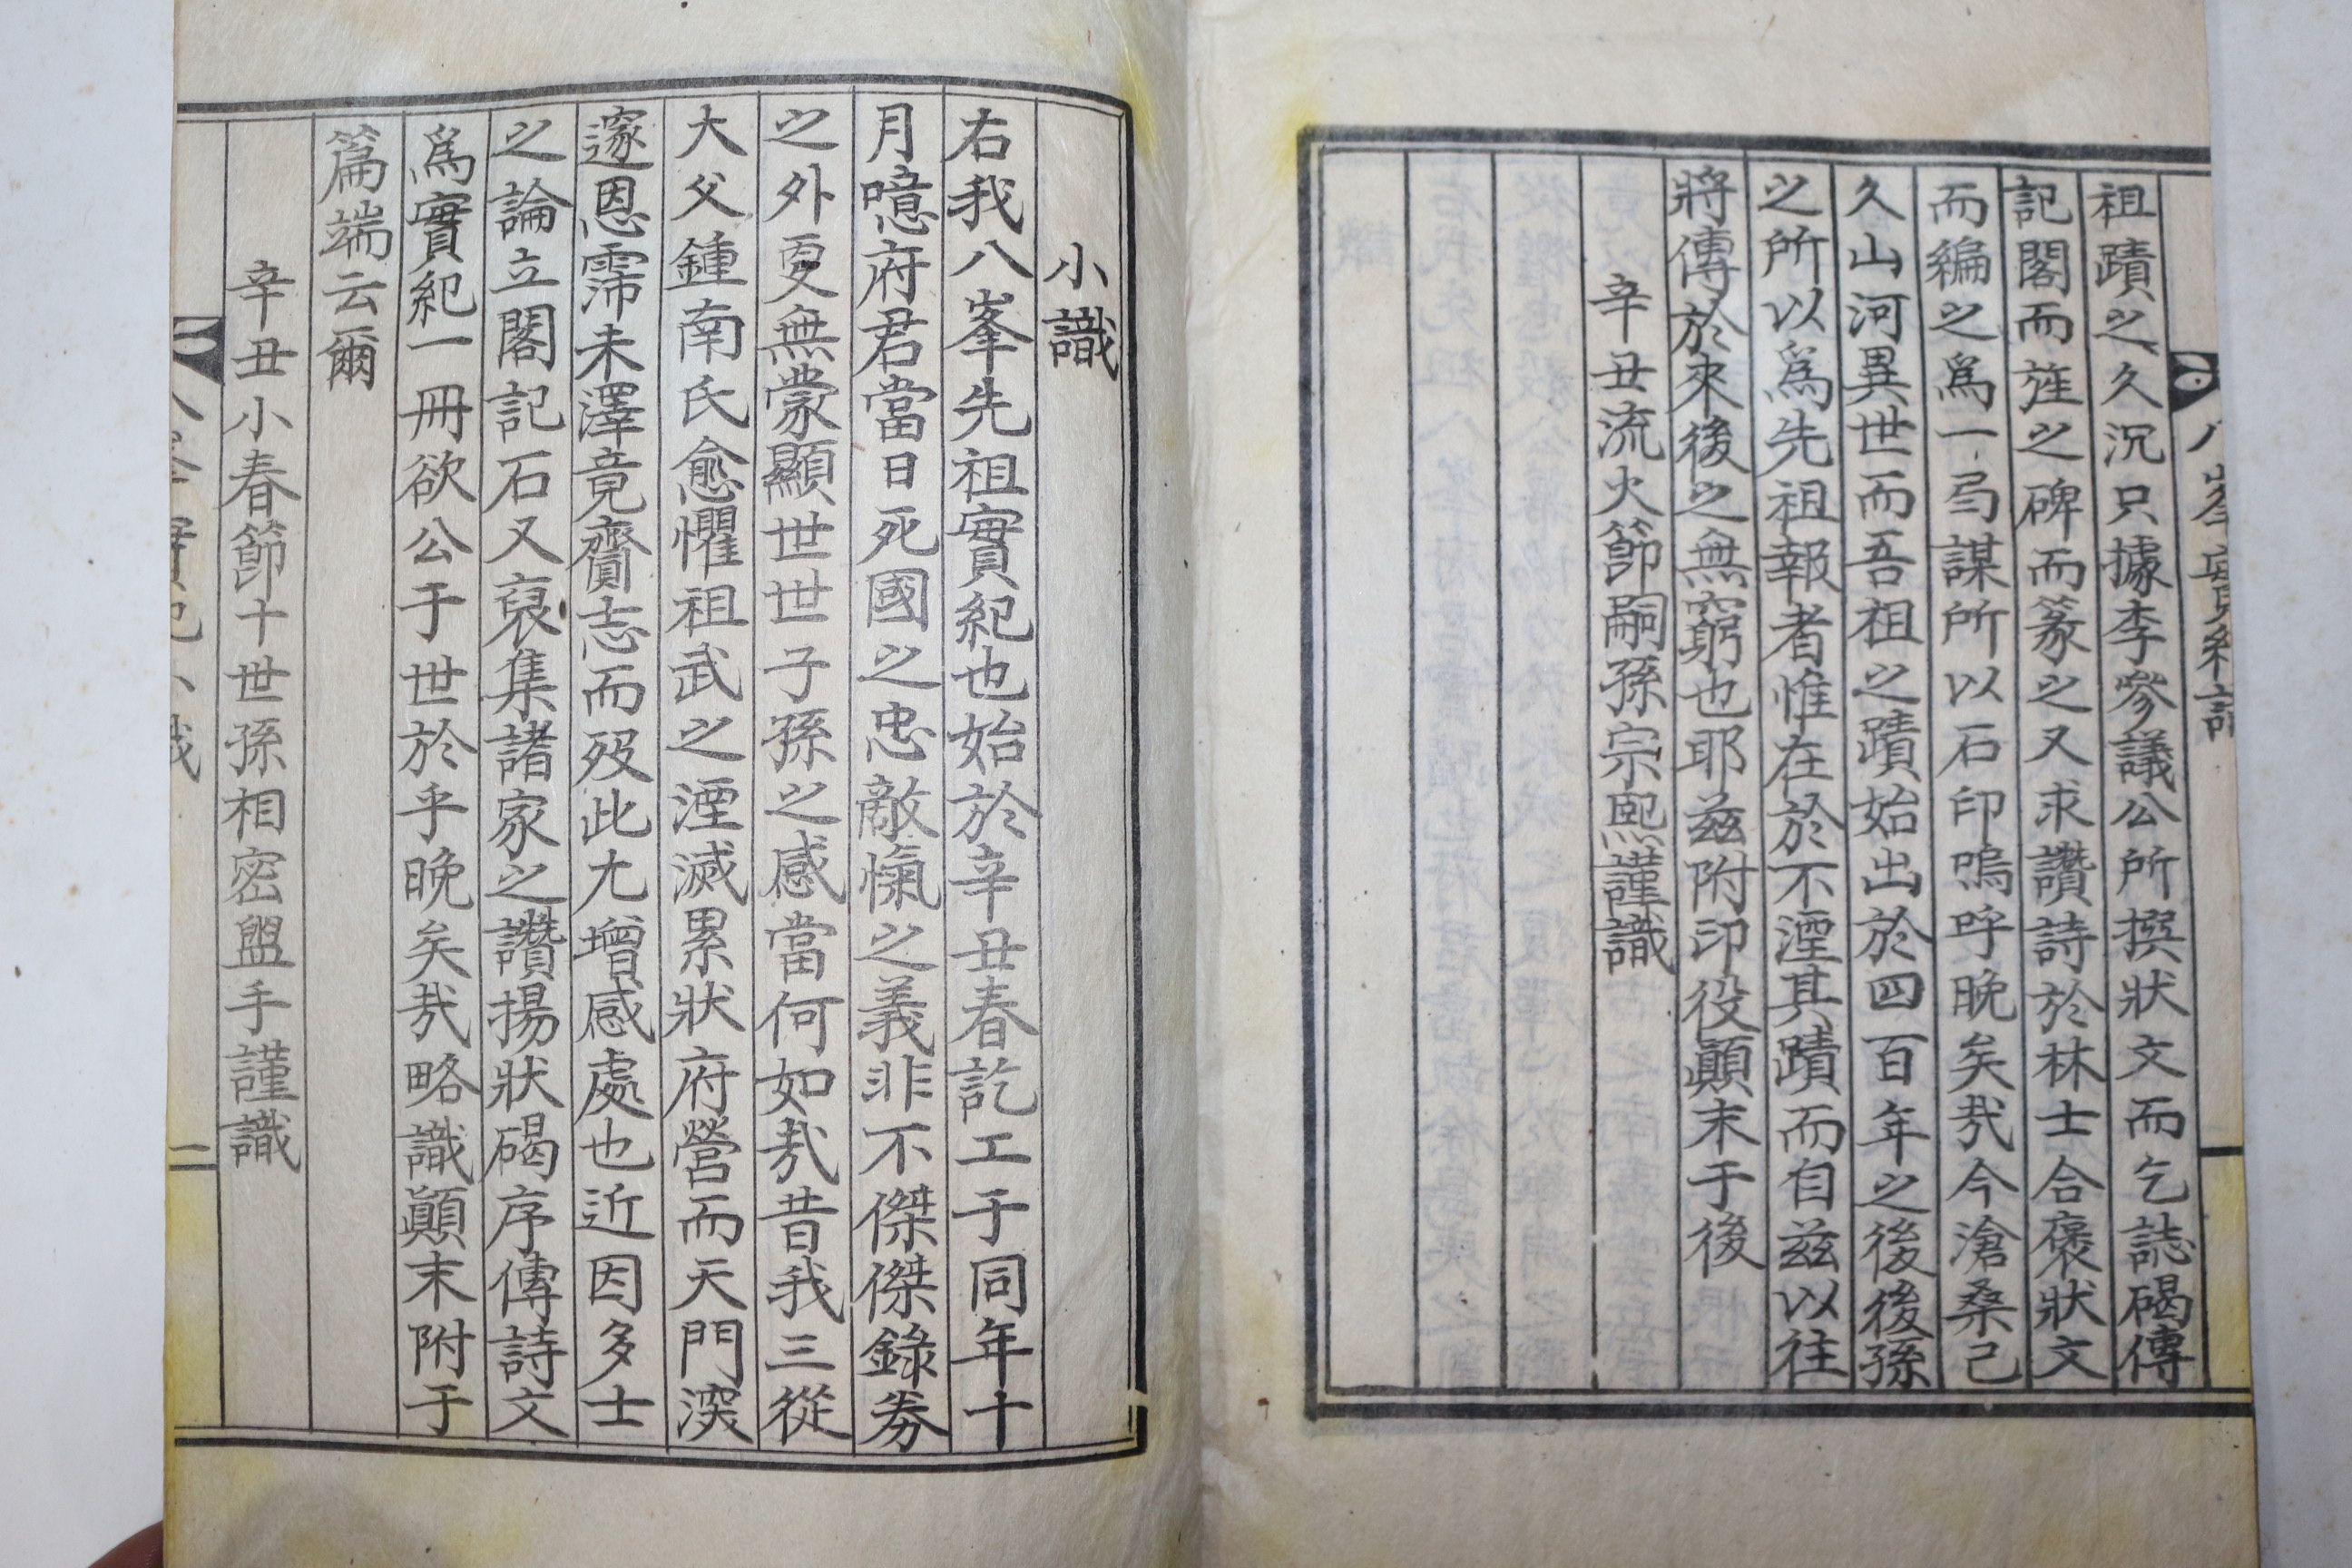 祖蹟之久沉只據李參議公所撰狀文而乞誌碣傳
記閣而旌之碑而篆之又求讚詩於林士合褒狀文
而編之爲一局謀所以石印嗚呼晩矣㦲今滄桑己
久山河異世而吾祖之蹟始出於四百年之後後孫
之所以爲先祖報者惟在於不湮其蹟而自玆以往
將傳於來後之無窮也耶玆附印役顚末于後
辛丑流火節嗣孫宗熙謹識
小識
右我八峯先祖實紀也始於辛丑春訖工于同年十
月噫府君當日死國之忠敵愾之義非不傑傑錄券
之外更無蒙顯世世子孫之感當何如㦲昔我三從
大父鍾南氏愈懼祖武之湮滅累狀府營而天門深
邃恩霈未澤竟齎志而歿此尤增感處也近因多士
之論立閣記石又裒集諸家之讚揚狀碣序傳詩文
爲實紀一冊欲公于世於乎晩矣㦲略識顚末附于
篇端云爾
辛丑小春節十世孫相密盥手謹識
二